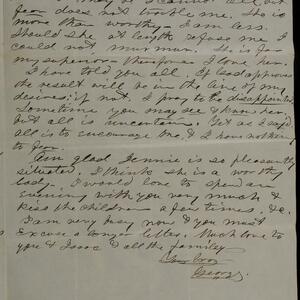 fear does not trouble me. She is
more than worthy. I am less.
Should she at length refuse me I
could not murmur. She is far
my superior therefore I love her.
I have told you all. If God approves
the result will be in the line of my
desires; if not, I pray to be disappointed
Sometime you may see & know her,
but all is uncertain. Yet as I said
all is to encourage one & I have nothing
to fear.
Am glad Jennie is so pleasantly
situated. I think she is a worthy
lady. I would love to spend an
evening with you very much &
kiss the children a few times, &c.
I am very busy now & you must
excuse a longer letter. Much love to
you & Isaac & all the family
Your bro
George